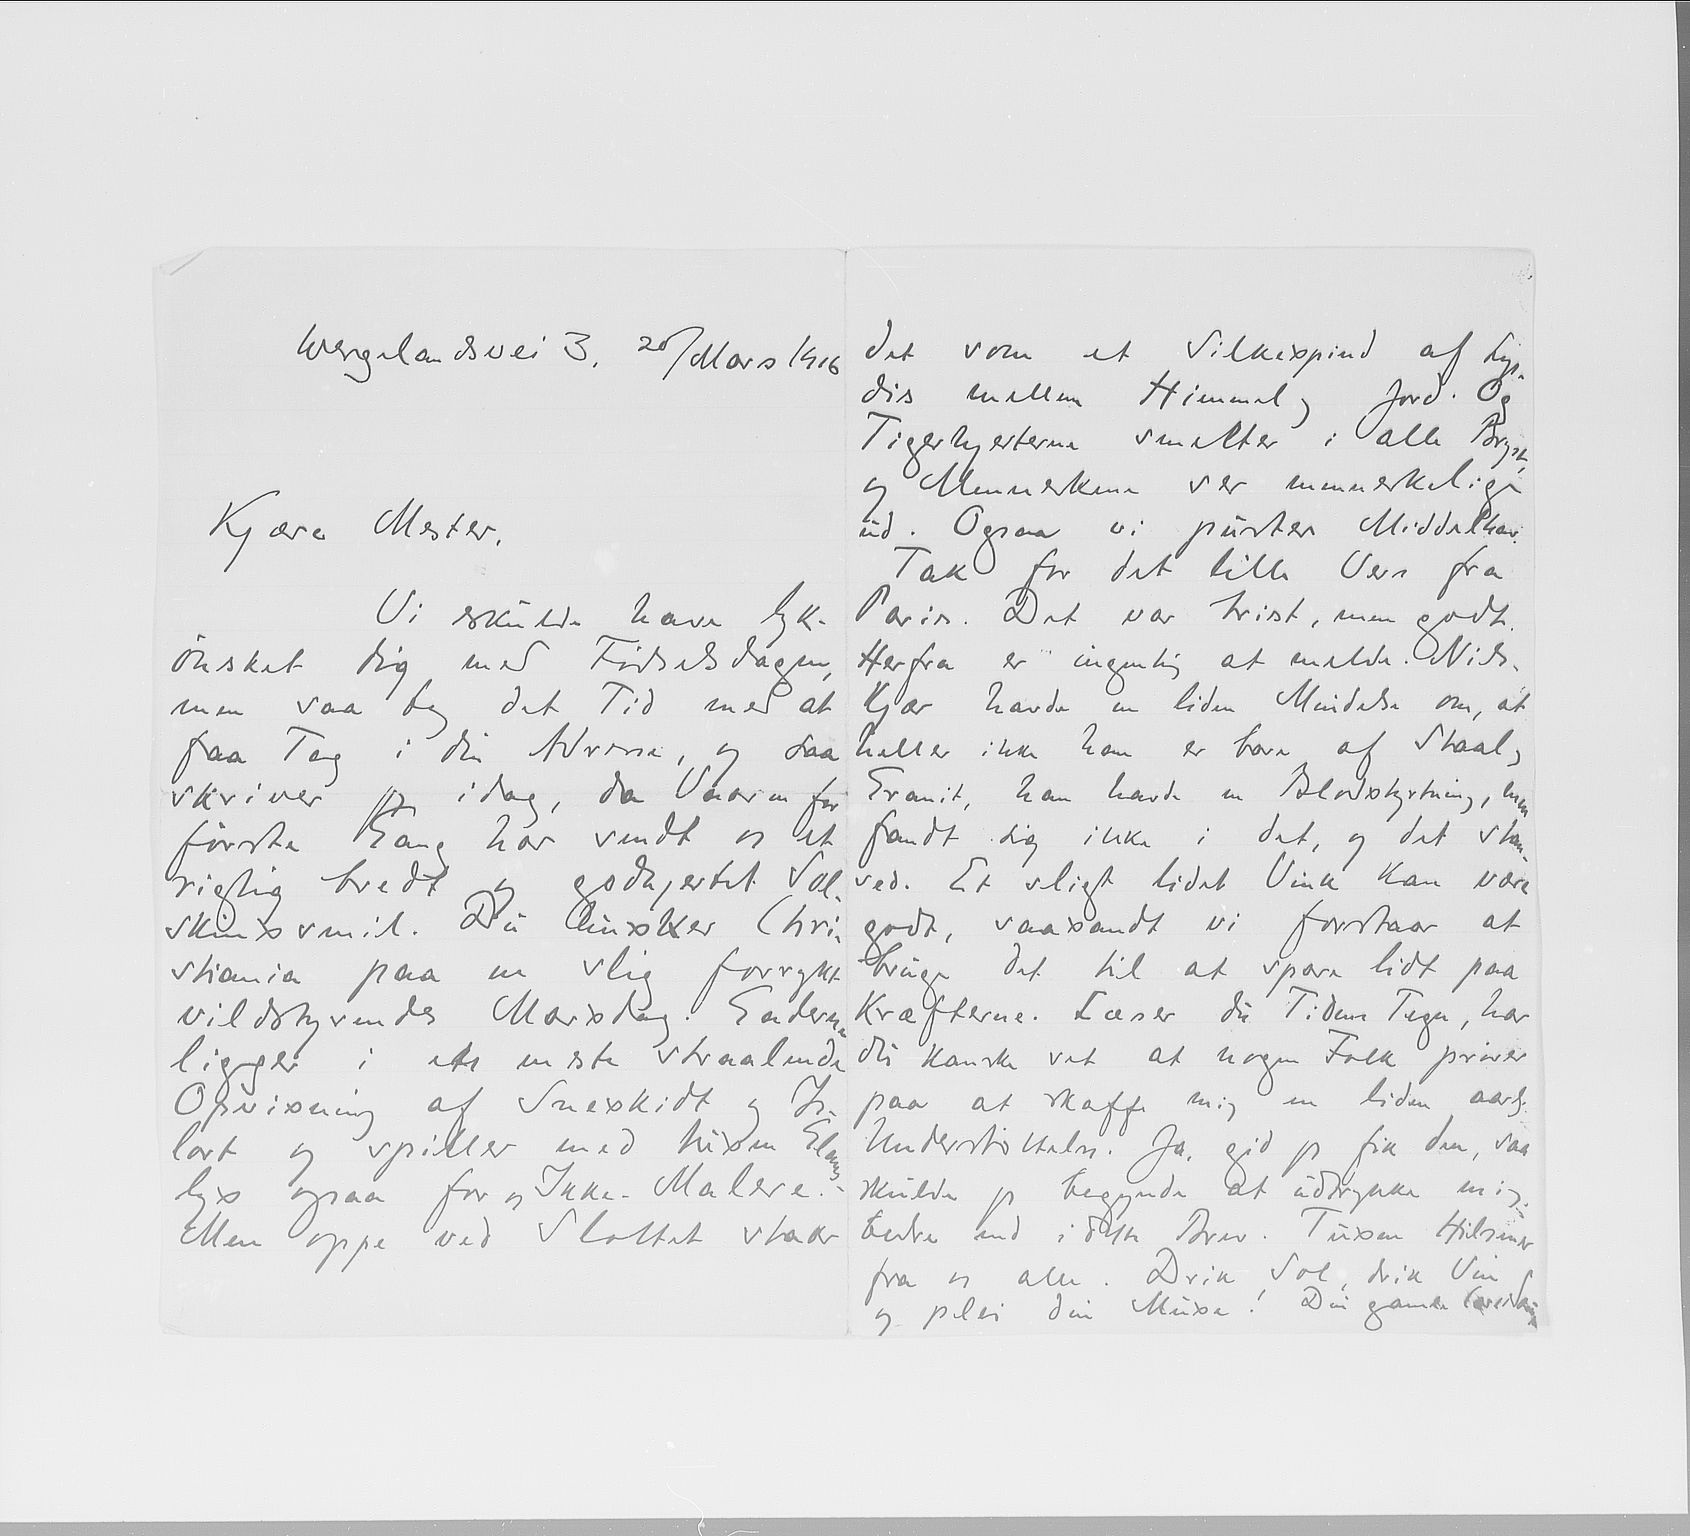 Wergelandsvei 3. 20/Mars 1916
Kjære Mester.
Vi skulde have lyk-
ønsket dig med Fødselsdagen,
men saa tog det Tid med at
faa Tag i din Adresse, og saa
skriver jeg idag, da Vaaren for
første Gang har sendt os et
rigtig bredt og godhjertet Sol-
skinssmil. Du husker Chri-
stiania paa en slig forrykt
vildstyrendes Marsdag. Gaderne
ligger i ets eneste straalende
Opvisning af Sneskidt og Is-
lort og spiller med tusen Glans-
lys ogsaa for os Ikke-Malere.
Men oppe ved Slottet staar
det som et Silkespind af Lys-
dis mellem Himmel og Jord. Og
Tigerhjerterne smelter i alle Bryst,
og Menneskene ser menneskelige
ud. Ogsaa vi puster Middelhav.
Tak for det lille Vers fra
Paris. Det var trist, men godt.
Herfra er ingenting at melde. Nils
Kjær havde en liden Mindelse om, at
heller ikke han er bare af Staal og
Granit, han havde en Blodstyrtning, men
fandt sig ikke i det, og det stan-
sed. Et sligt lidet Vink kan være
godt, saasandt vi forstaar at
bruge det til at spare lidt paa
Kræfterne. Læser du Tidens Tegn, har
du kanske set at nogen Folk prøver
paa at skaffe mig en liden aarlig
Understøttelse. Ja, gid jeg fik den, saa
skulde jeg begynde at uddrykke mig
bedre end i dette Brev. Tusen Hilsener
fra os alle. Drik Sol, drik Vin
og plei din Muse! Din gamle